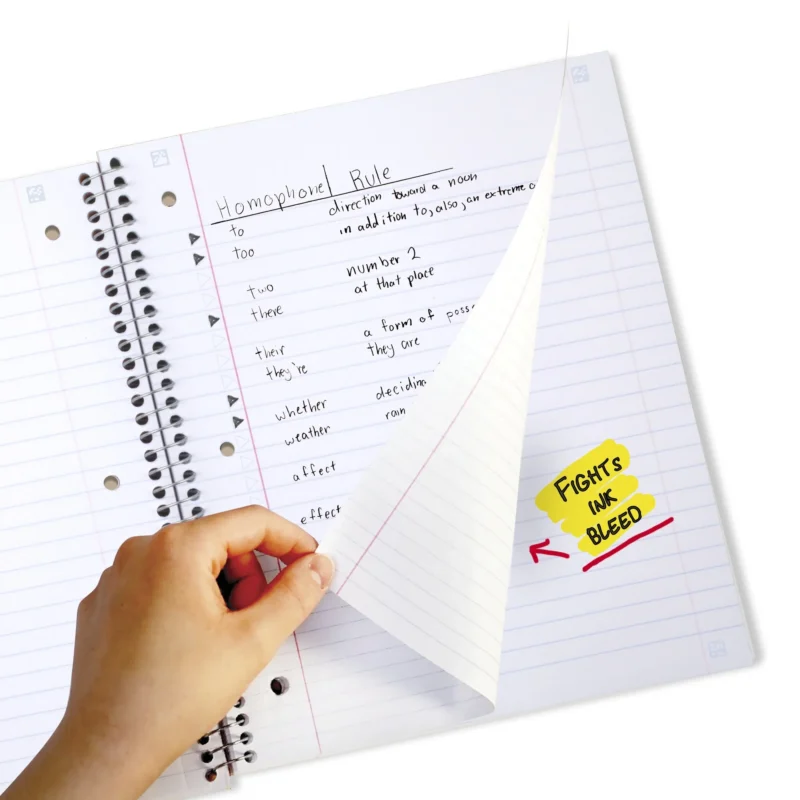 Homophone Rule
to direction toward a noun
too in addition to, also, an extreme
two number 2
there at that place
their a form of
they're they are
whether
weather rain
affect
effect
FIGHTS
INK
BLEED